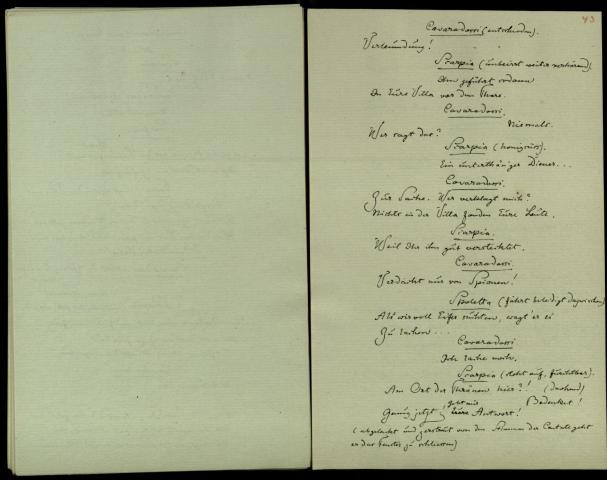 43
Cavaradossi (entschieden).
Verleumdung!
Scarpia (unbeirrt weiter verhörend).
Ihm geführt sodann
In Eure Villa vor dem Thore.
Cavaradossi.
Niemals.
Wer sagt das?
Scarpia (honigsüss).
Ein unterthäniger Diener...
Cavaradossi.
Zur Sache. Wer verklagt mich?
Nichts in der Villa fanden Eure Leute.
Scarpia.
Weil Ihr ihn gut verstecktet.
Cavaradossi.
Verdacht nur von Spionen!
Spoletta (fährt beleidigt dazwischen)
Als wir voll Eifer suchten, wagt' er es
Zu lachen...
Cavaradossi
Ich lache noch.
Scarpia (steht auf, furchtbar).
Am Ort der Thränen hier?! (drohend)
Bedenket!
Genug jetzt! gebt mir Eure Antwort!
(abgelenkt und gestört von den Stimmen der Cantate geht
er das Fenster zu schliessen)